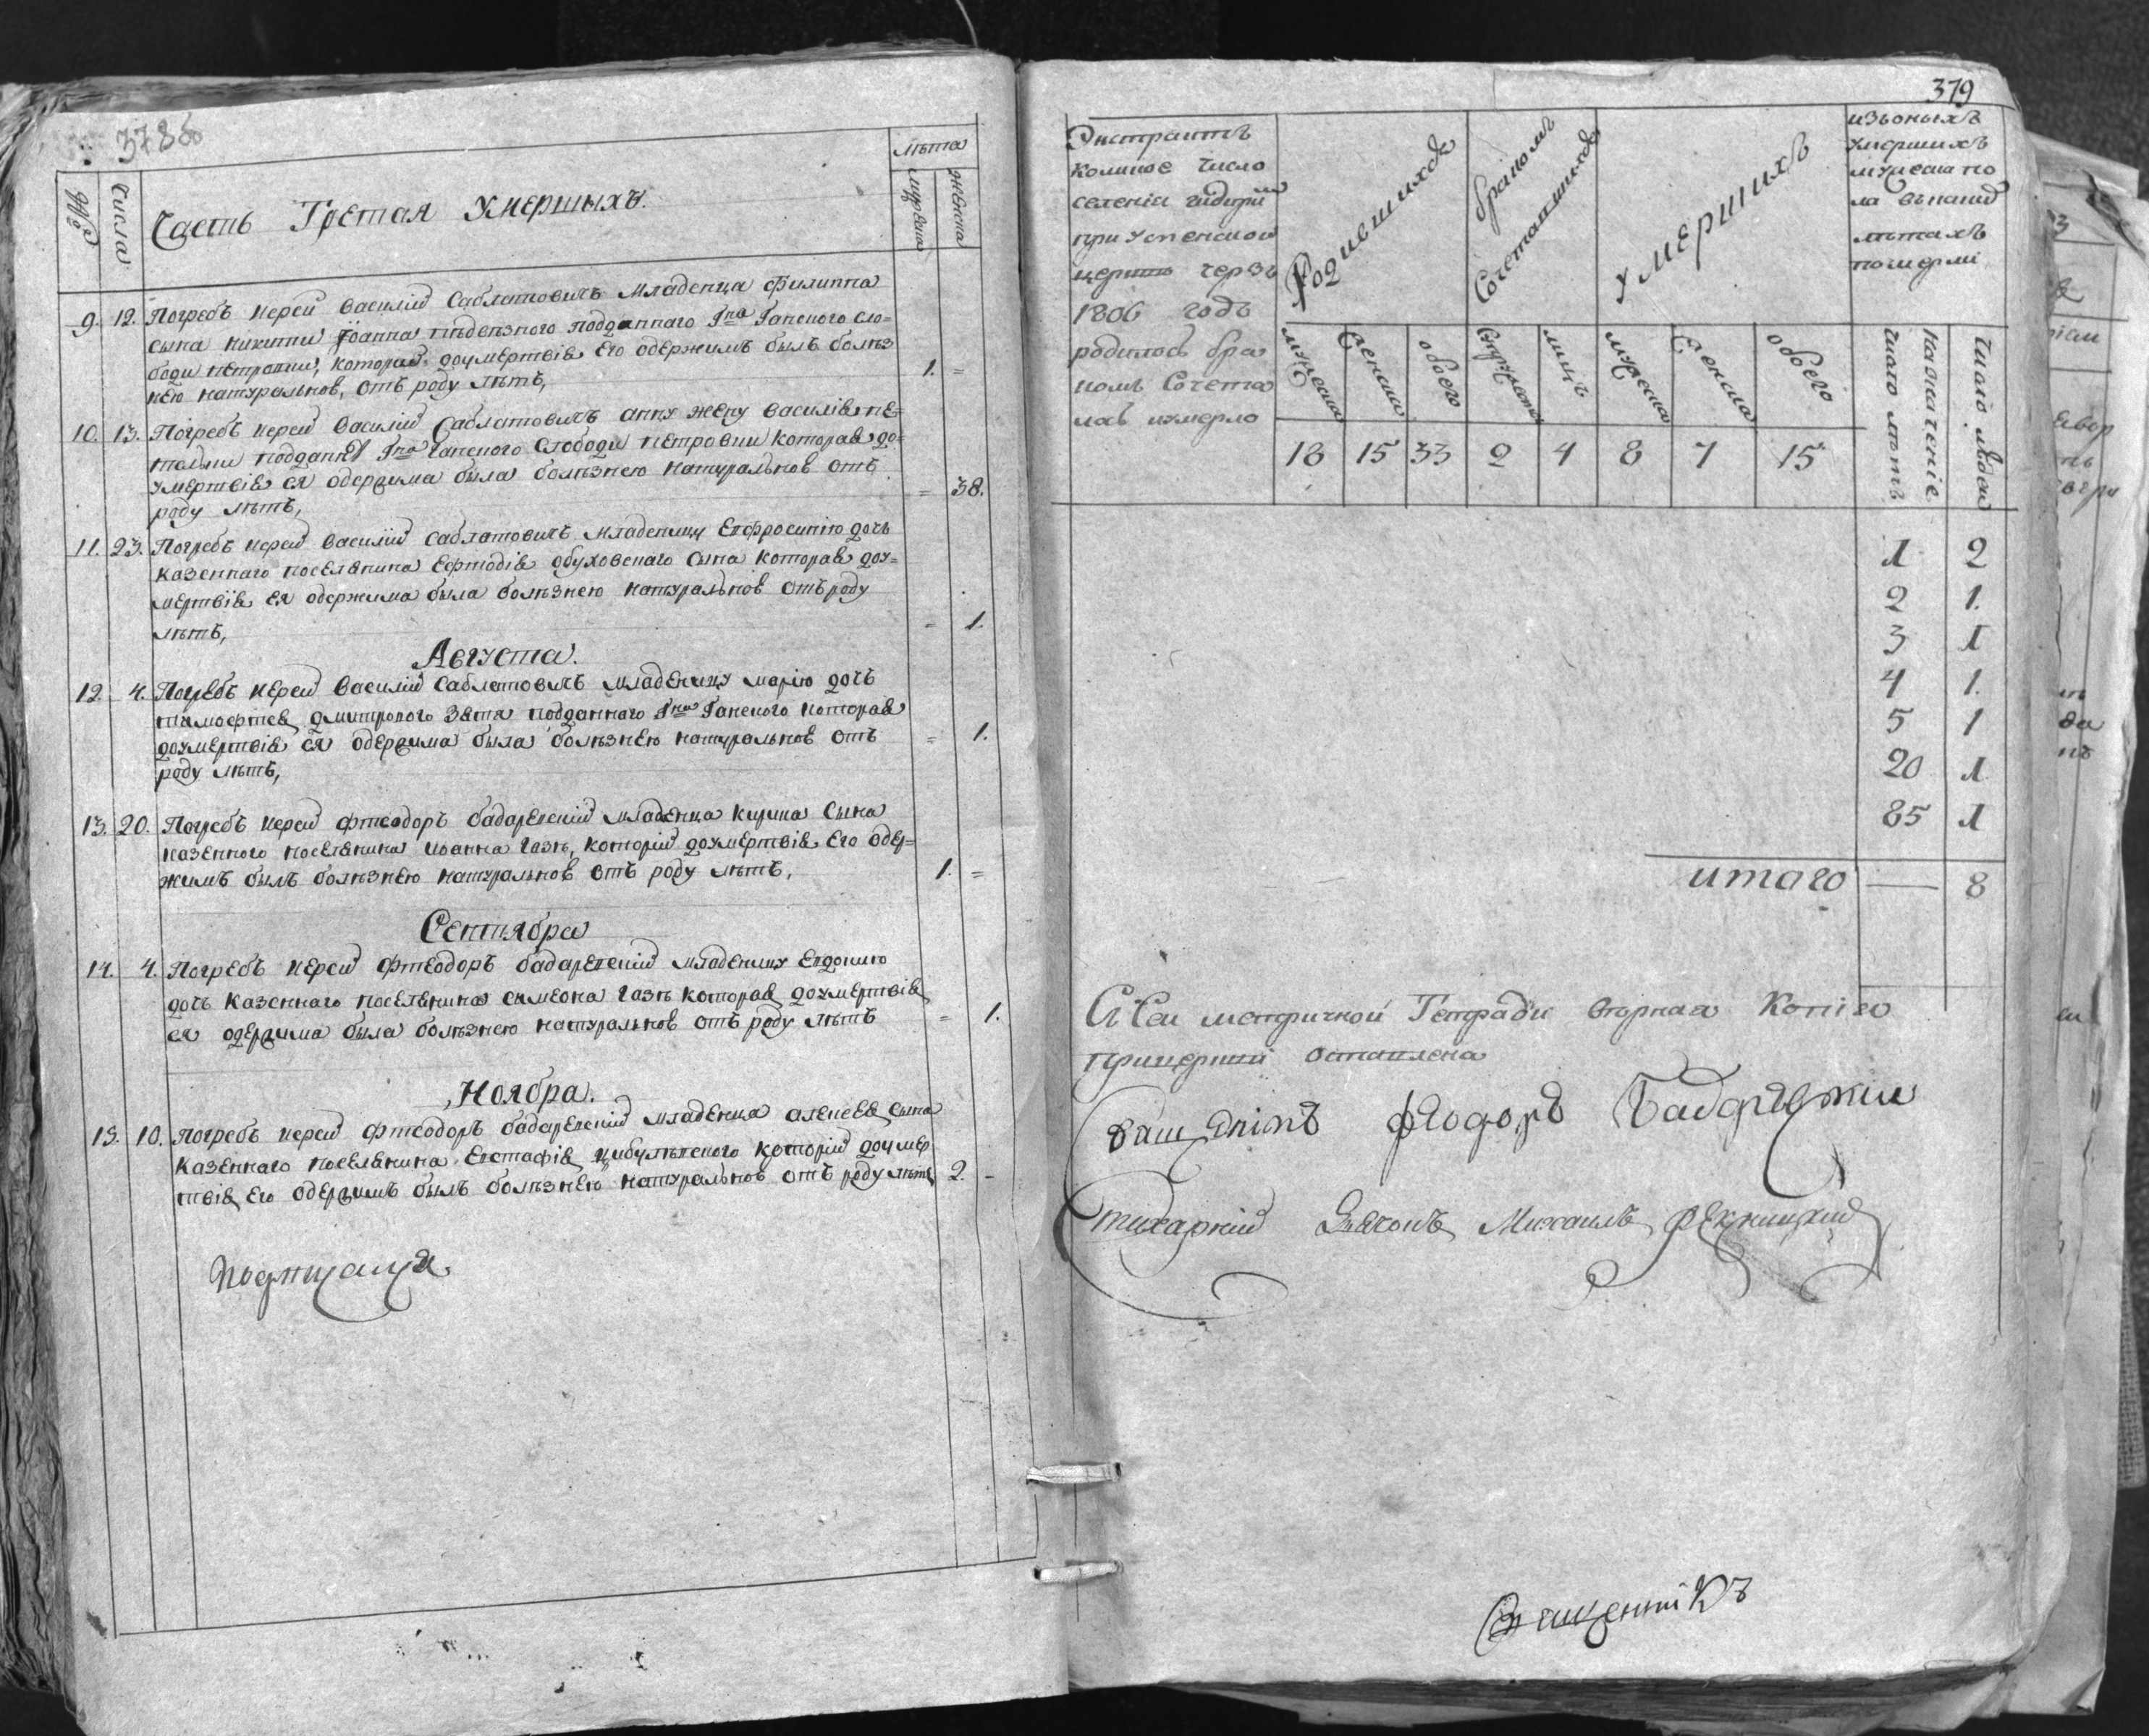 378об
№
Числа
Часть Третая Умершыхъ.
лѣта
мужеска
женска
9. 12. Погребъ иерей Василій Саблатовичъ младенца Филиппа
сына Никити Іоанна подданнаго Гна Ганского сло=
боди Петровки, которій доумертвія Его одержимъ былъ болѣз
нею натуральною, отъ роду лѣтъ, 1. =
10. 13. Погребъ иерей Василій Саблатовичъ анну жену Василія пе=
подданн Гна Ганского Слободи Петровки которая до=
умертвія ея одержима была болѣзнею натуральною отъ
роду лѣтъ, = 38.
11. 23. Погребъ иерей Василій Саблатовичъ младеницу Евфросинію дочь
казеннаго поселянина Обуховскаго сина которая доу=
мертвія ея одержима была болѣзнею натуральною отъ роду
лѣтъ, = 1.
Августа.
12. 4. Погребъ иерей Василій Саблатовичъ младеницу марію дочь
Дмитрового зятя подданнаго Гна Ганского которая
доумертвія ея одержима была болѣзнею натуральною отъ
роду лѣтъ, = 1.
13. 20. Погребъ иерей Фтеодоръ Бадаревскій младенца Кирила Сына
казенного поселянина Иоанна Газъ, которій доумертвія Его одер=
жимъ былъ болѣзнею натуральною отъ роду лѣтъ, 1. =
Сентября
14. 4. Погребъ иерей Фтеодоръ Бадаревскій младеницу Евдокию
дочь казеннаго поселянина симеона Газъ которая доумертвія
ея одержима была болѣзнею натуральною отъ роду лѣтъ = 1.
Ноября.
15. 10. Погребъ иерей Фтеодоръ Бадаревскій младенца алексея сына
казеннаго поселянина Евстафія Цибульского которій доумер
твія Его одержимъ былъ болѣзнею натуральною отъ роду лѣтъ 2. -
379
Экстрактъ
коликое число
селеніи
при Успенской
церкви чрезъ
1806 годъ
родилось бра
комъ Сочета
лось иумерло
Родившихся
бракомъ
Сочетавшихся
умершихъ
изъоныхъ
умершихъ
мужеска по
ла въкаких
лѣтахъ
померли
мужеска
женска
обоего
Супружествъ
лицъ
мужеска
женска
обоего
число лѣтъ
каждое
число людей
18 15 33 2 4 8 7 15
1 2
2 1.
3 1
4 1.
5 1
20 1
85 1
итого — 8
Сисеи метричной Тетради вторная Копія
прицеркви оставлена
Священикъ Феодоръ Бадаревскии
Стихарній Дьячокъ Михаилъ
Священникъ